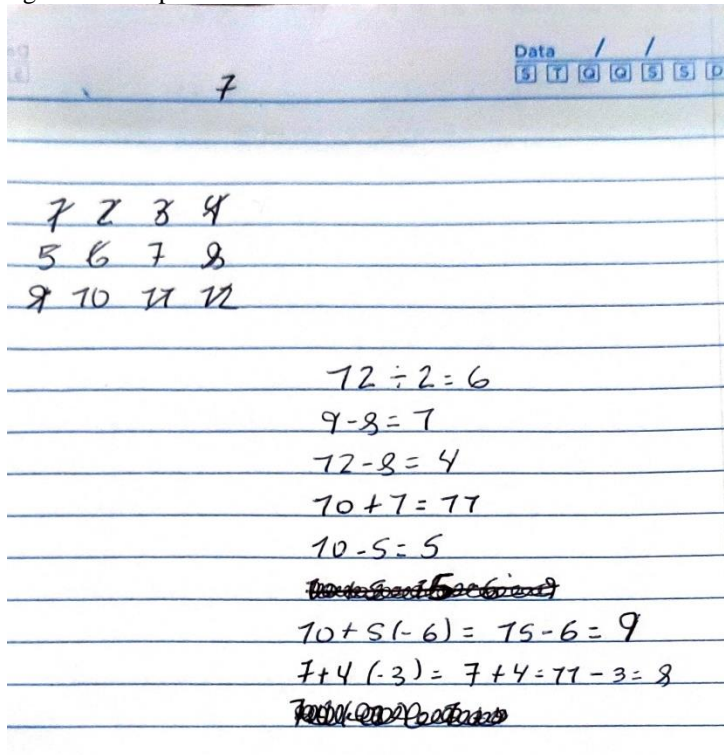 Data / /
S T Q Q S S D
7
1 2 3 4
5 6 7 8
9 10 11 12
12 ÷ 2 = 6
9 - 8 = 1
12 - 8 = 4
10 + 1 = 11
10 - 5 = 5
10 + 5 (- 6) = 15 - 6 = 9
7 + 4 (- 3) = 7 + 4 = 11 - 3 = 8